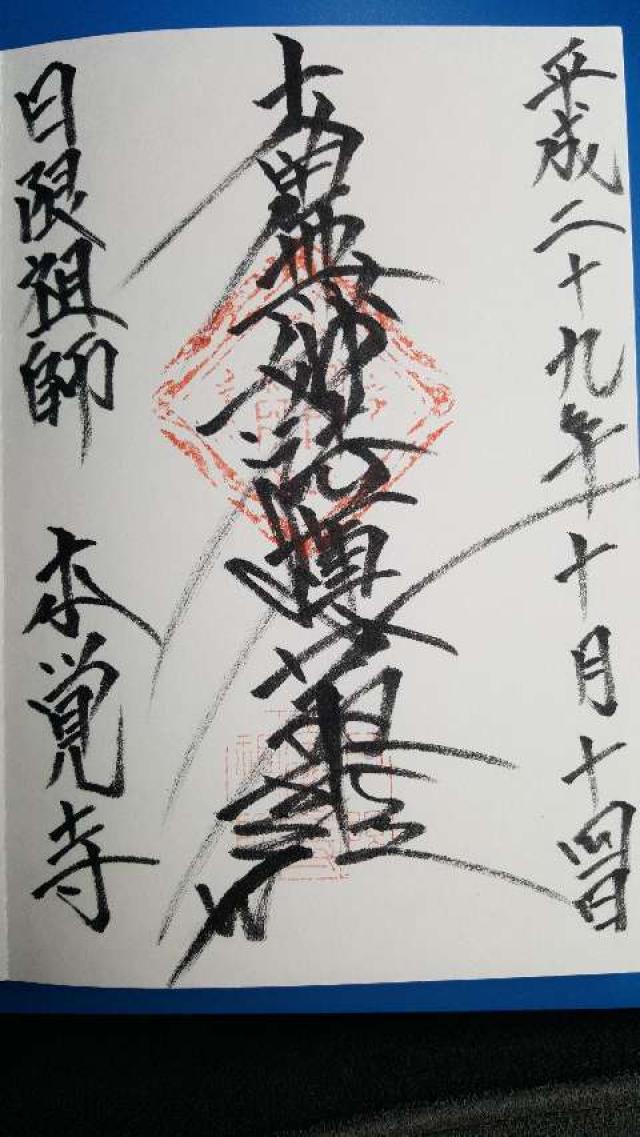 平成二十九年十月十四日
南無妙法蓮華経
日限祖師 本覚寺